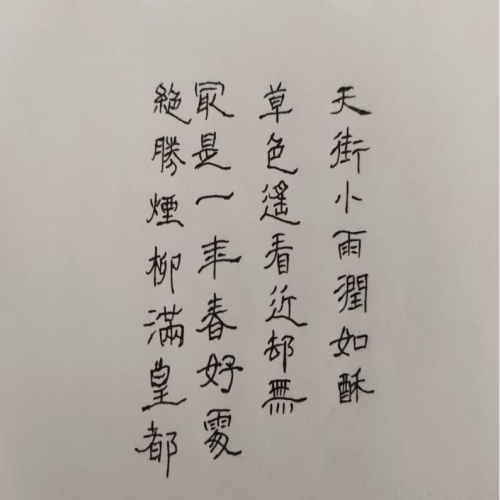 天街小雨潤如酥
草色遙看近却無
冣是一年春好處
絕勝煙柳滿皇都